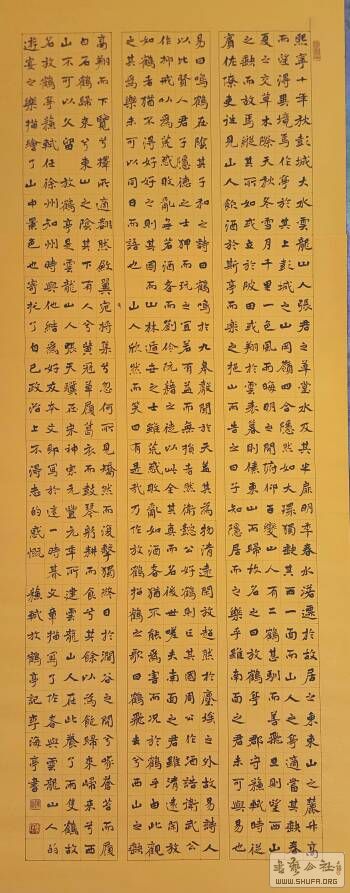 熙寧十年秋彭城大水雲龍山人張君之草堂水及其半扉明年春水落遷於故居之東東山之麓升高
而望得異境焉作亭於其上彭城之山岡嶺四合隱然如大環獨缺其西一面而山人之亭適當其缺春
夏之交草木際天秋冬雪月千里一色風雨晦明之間俯仰百變山人有二鶴甚馴而善飛旦則望西山
之缺而放焉縱其所如或立於陂田或翔於雲表暮則傃東山而歸故名之曰放鶴亭郡守蘇軾時從
賓佐僚吏往見山人飲酒於斯亭而樂之挹山而告之曰子知隱居而之樂乎雖南面之君未可與易也
易曰鳴鶴在陰其子和之詩曰鶴鳴於九皋聲聞於天蓋其為物清遠閒放超然於塵埃之外故易詩人
以比賢人君子隱德之士狎而玩之宜若有益而無損者然衛懿公好鶴則亡其國周公作酒誥衛武公
作抑戒以為荒惑敗亂無若酒者而劉伶阮籍之徒以此全其真而名後世嗟夫南面之君雖清遠閒放
如鶴者猶不得好好之則亡其國而山林遁世之士雖荒惑敗亂如酒者猶不能為害而況於鶴乎由此觀
之其為樂未可以同日而語也 山人欣然而笑曰有是哉乃作放鶴招鶴之歌曰鶴飛去兮西山之缺
高翔而下覽兮擇所適翻然斂翼宛將集兮忽何所見矯然而復擊獨終日於澗谷之間兮啄蒼苔而履
白石鶴歸來兮東山之陰其下有人兮黃冠草屨葛衣而鼓琴躬耕而食兮其餘以汝飽歸來歸來兮西
山不可以久留 放鶴亭是雲龍山人張天驥在宋神宗元豐元年所建雲龍山人在此養了兩隻鶴故
名放鶴亭蘇軾任徐州知州時與他結為好友本文即寫於這一時期文章寫了作者與雲龍山人的
遊宴之樂描繪了山中景色也寄托了自己政治上不得志的感慨 蘇軾放鶴亭記 李海亭書
WWW.SHUFA.ORG